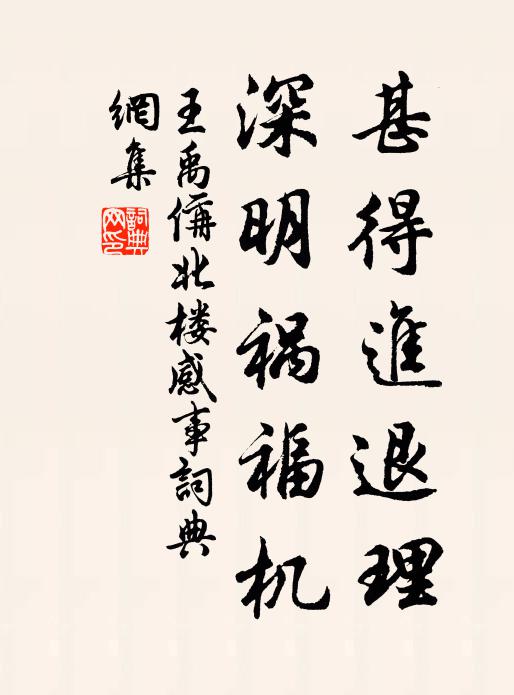 甚得進退理
深明祸福机
王禹偁北楼感事詞典
網集
詞典网印